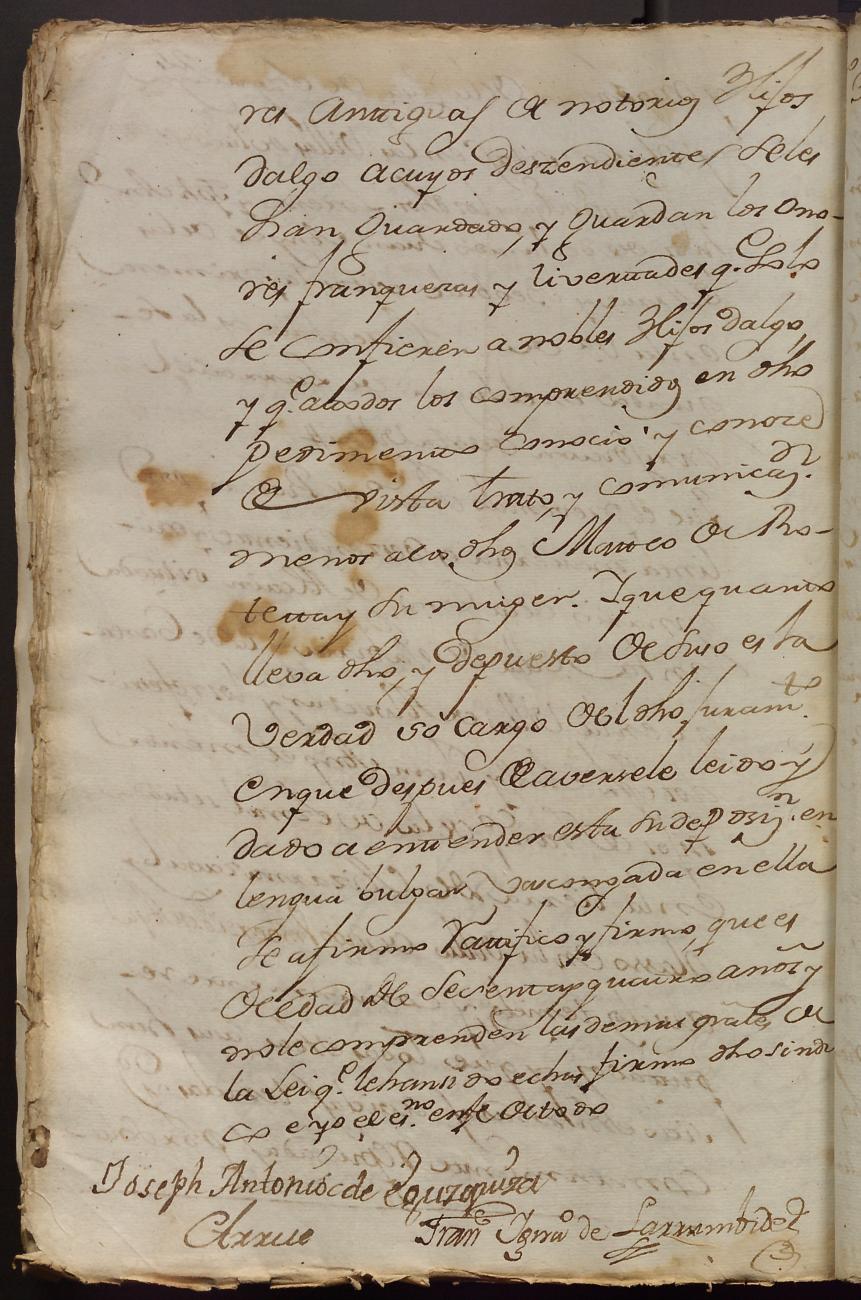 res Antiguas de notorios Hijos
dalgo acuyos deszendientes seles
han Guardado, y Guardan los ono-
res franquezas y livertades q.e solo
se confieren a nobles Hijos dalgo,
y q.e atodos los comprendidos en dho
Pedimento conocio y conoze
de vista trato, y comunicaz.on
menos alos dhos Matheo de Ro-
teta y su muger. Y que quanto
lleva dho, y depuesto de suso es la
Verdad so cargo del dho juram.to
enque despues de aversele leido y
dado a entender esta su deposiz.n en
lengua bulgar Vascongada en ella
se afirmo Ratifico y firmo, que es
de edad de sesenta y quatro años y
nole comprenden las demas grales de
la Lei q.e lehansido echas firmo dho sindi
co e yo el es.no enfe de todo
Joseph Antonio de Eguzquiza
Fran.co Ign.o de Larrumbide